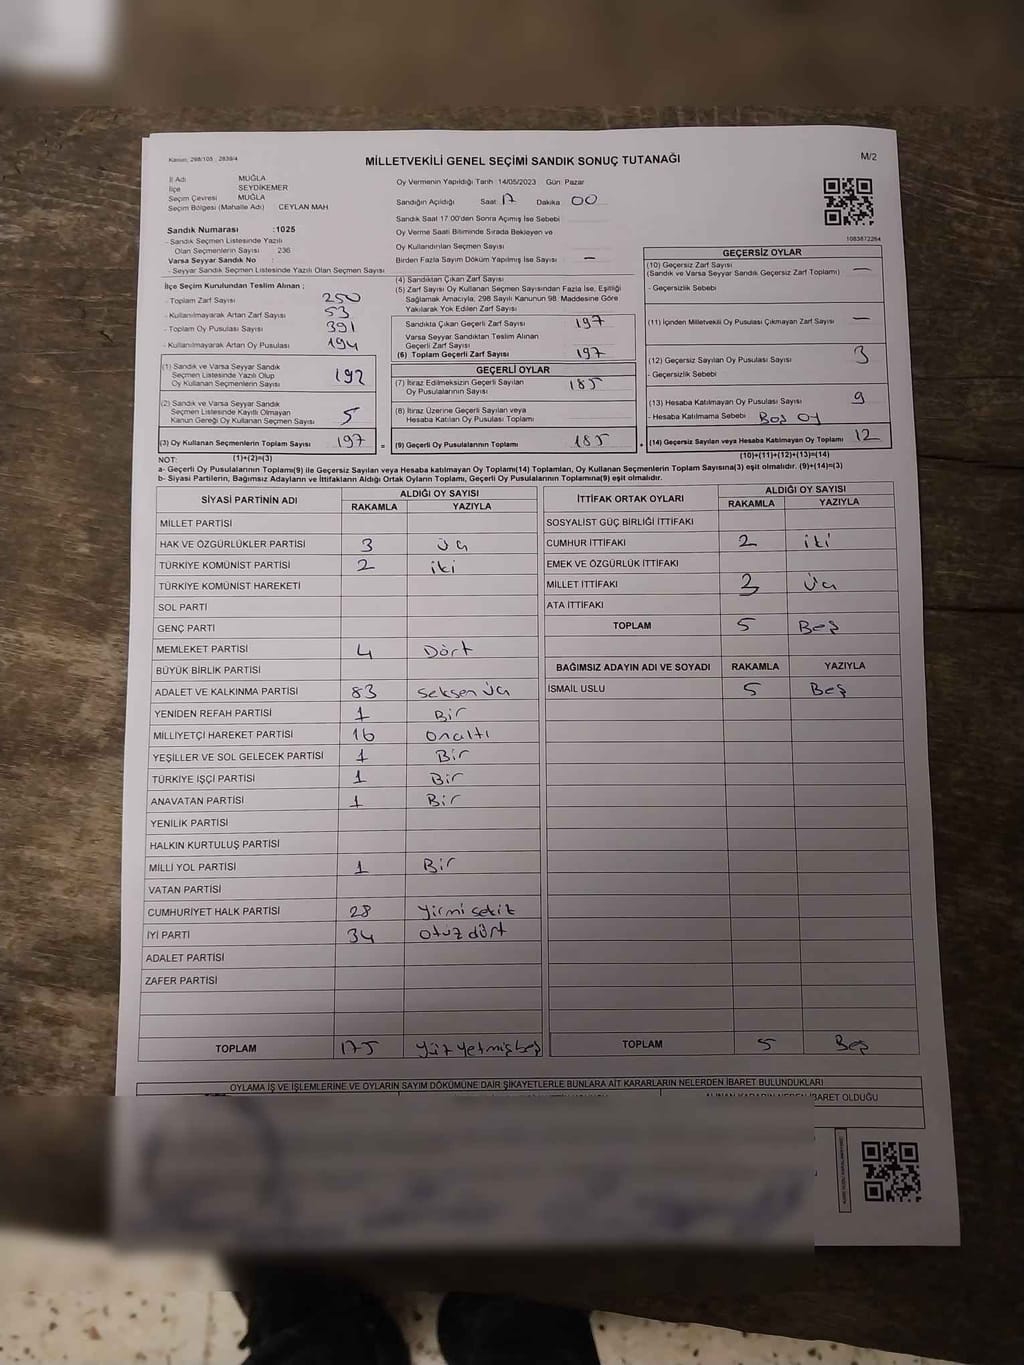 Kanun: 298/105 , 2839/4
MİLLETVEKİLİ GENEL SEÇİMİ SANDIK SONUÇ TUTANAĞI
M/2
İl Adı MUĞLA
İlçe SEYDİKEMER
Seçim Çevresi MUĞLA
Seçim Bölgesi (Mahalle Adı) CEYLAN MAH
Sandık Numarası :1025
- Sandık Seçmen Listesinde Yazılı
Olan Seçmenlerin Sayısı : 236
Varsa Seyyar Sandık No :
- Seyyar Sandık Seçmen Listesinde Yazılı Olan Seçmen Sayısı
Oy Vermenin Yapıldığı Tarih :14/05/2023 Gün: Pazar
Sandığın Açıldığı Saat 17 Dakika 00
Sandık Saat 17.00'den Sonra Açımış İse Sebebi
Oy Verme Saati Bitiminde Sırada Bekleyen ve
Oy Kullandırılan Seçmen Sayısı
Birden Fazla Sayım Döküm Yapılmış İse Sayısı —
1083872264
İlçe Seçim Kurulundan Teslim Alınan ;
- Toplam Zarf Sayısı 250
- Kullanılmayarak Artan Zarf Sayısı 53
- Toplam Oy Pusulası Sayısı 391
- Kullanılmayarak Artan Oy Pusulası 194
(1) Sandık ve Varsa Seyyar Sandık
Seçmen Listesinde Yazılı Olup
Oy Kullanan Seçmenlerin Sayısı 192
(2) Sandık ve Varsa Seyyar Sandık
Seçmen Listesinde Kayıtlı Olmayan
Kanun Gereği Oy Kullanan Seçmen Sayısı 5
(3) Oy Kullanan Seçmenlerin Toplam Sayısı 197 =
(4) Sandıktan Çıkan Zarf Sayısı
(5) Zarf Sayısı Oy Kullanan Seçmen Sayısından Fazla İse, Eşitliği
Sağlamak Amacıyla, 298 Sayılı Kanunun 98. Maddesine Göre
Yakılarak Yok Edilen Zarf Sayısı
Sandıkta Çıkan Geçerli Zarf Sayısı 197
Varsa Seyyar Sandıktan Teslim Alınan
Geçerli Zarf Sayısı
(6) Toplam Geçerli Zarf Sayısı 197
GEÇERLİ OYLAR
(7) İtiraz Edilmeksizin Geçerli Sayılan
Oy Pusulalarının Sayısı 185
(8) İtiraz Üzerine Geçerli Sayılan veya
Hesaba Katılan Oy Pusulası Toplamı
(9) Geçerli Oy Pusulalarının Toplamı 185 +
GEÇERSİZ OYLAR
(10) Geçersiz Zarf Sayısı —
(Sandık ve Varsa Seyyar Sandık Geçersiz Zarf Toplamı)
- Geçersizlik Sebebi
(11) İçinden Milletvekili Oy Pusulası Çıkmayan Zarf Sayısı —
(12) Geçersiz Sayılan Oy Pusulası Sayısı 3
- Geçersizlik Sebebi
(13) Hesaba Katılmayan Oy Pusulası Sayısı 9
- Hesaba Katılmama Sebebi Boş Oy
(14) Geçersiz Sayılan veya Hesaba Katılmayan Oy Toplamı 12
NOT: (1)+(2)=(3) (10)+(11)+(12)+(13)=(14)
a- Geçerli Oy Pusulalarının Toplamı(9) ile Geçersiz Sayılan veya Hesaba katılmayan Oy Toplamı(14) Toplamları, Oy Kullanan Seçmenlerin Toplam Sayısına(3) eşit olmalıdır. (9)+(14)=(3)
b- Siyasi Partilerin, Bağımsız Adayların ve İttifakların Aldığı Ortak Oyların Toplamı, Geçerli Oy Pusulalarının Toplamına(9) eşit olmalıdır.
SİYASİ PARTİNİN ADI
ALDIĞI OY SAYISI
RAKAMLA YAZIYLA
MİLLET PARTİSİ
HAK VE ÖZGÜRLÜKLER PARTİSİ 3 Üç
TÜRKİYE KOMÜNİST PARTİSİ 2 iki
TÜRKİYE KOMÜNİST HAREKETİ
SOL PARTİ
GENÇ PARTİ
MEMLEKET PARTİSİ 4 Dört
BÜYÜK BİRLİK PARTİSİ
ADALET VE KALKINMA PARTİSİ 83 Seksen Üç
YENİDEN REFAH PARTİSİ 1 Bir
MİLLİYETÇİ HAREKET PARTİSİ 16 Onaltı
YEŞİLLER VE SOL GELECEK PARTİSİ 1 Bir
TÜRKİYE İŞÇİ PARTİSİ 1 Bir
ANAVATAN PARTİSİ 1 Bir
YENİLİK PARTİSİ
HALKIN KURTULUŞ PARTİSİ
MİLLİ YOL PARTİSİ 1 Bir
VATAN PARTİSİ
CUMHURİYET HALK PARTİSİ 28 Yirmi sekiz
İYİ PARTİ 34 Otuz dört
ADALET PARTİSİ
ZAFER PARTİSİ
TOPLAM 175 Yüz yetmişbeş
İTTİFAK ORTAK OYLARI
ALDIĞI OY SAYISI
RAKAMLA YAZIYLA
SOSYALİST GÜÇ BİRLİĞİ İTTİFAKI
CUMHUR İTTİFAKI 2 iki
EMEK VE ÖZGÜRLÜK İTTİFAKI
MİLLET İTTİFAKI 3 Üç
ATA İTTİFAKI
TOPLAM 5 Beş
BAĞIMSIZ ADAYIN ADI VE SOYADI RAKAMLA YAZIYLA
İSMAİL USLU 5 Beş
TOPLAM 5 Beş
OYLAMA İŞ VE İŞLEMLERİNE VE OYLARIN SAYIM DÖKÜMÜNE DAİR ŞİKAYETLERLE BUNLARA AİT KARARLARIN NELERDEN İBARET BULUNDUKLARI
ALINAN KARARIN NEDEN İBARET OLDUĞU